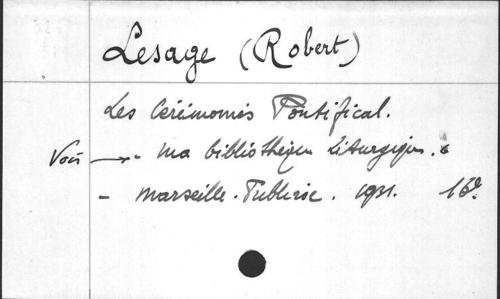 Lesage (Robert)
Les Cérémonies Pontifical.
Voir → - Ma bibliothèque Liturgique.
- Marseille. Publiroc. 1931. 16º